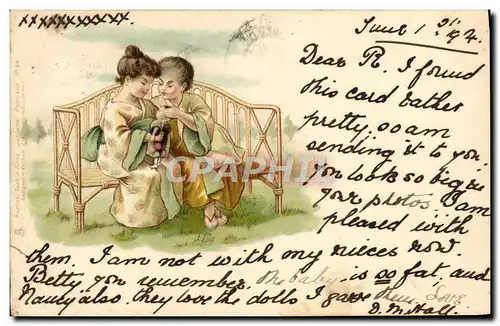 xxxxxxxxxxx.
June 1st 04.
Dear R. I found
this card rather
pretty, so am
sending it to you.
You look so big in
your photos. I am
pleased with
them. I am not with my nieces now.
Betty you remember, the baby, is so fat, and
Nancy also, they love the dolls I gave them, Love
D. M. Hall.